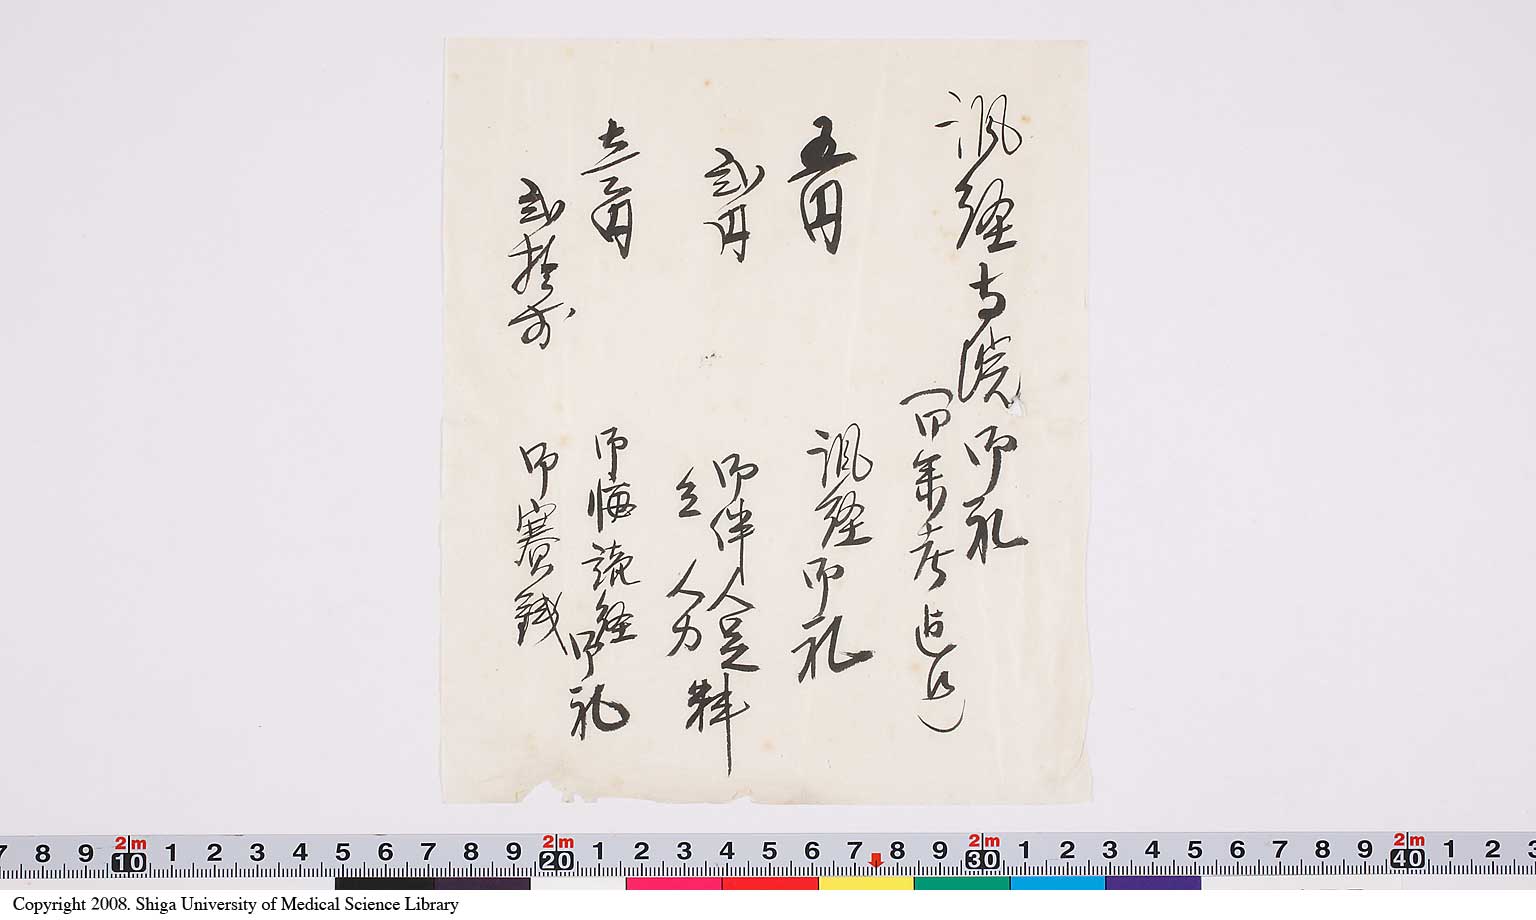 諷経寺院御礼
五円
諷経御礼
弐円
御伴人足料
人力
円
御悔読経御礼
弐拾
御賽銭
7 8 9 10 1 2 3 4 5 6 7 8 9 20 1 2 3 4 5 6 7 8 9 30 1 2 3 4 5 6 7 8 9 40 1 2 3
2m 2m 2m 2m
Copyright 2008. Shiga University of Medical Science Library